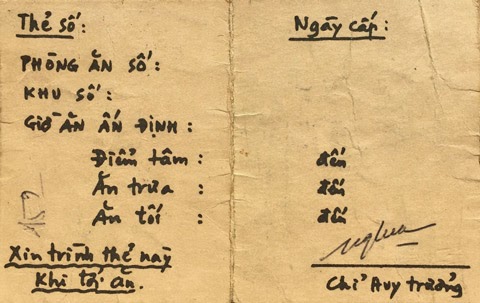 Thẻ số:
PHÒNG ĂN SỐ:
KHU SỐ:
GIỜ ĂN ẤN ĐỊNH:
Điểm tâm:
Ăn trưa:
Ăn tối:
Xin trình thẻ này
Khi tới ăn.
152
Ngày cấp:
đến
đến
đến
Chỉ Huy trưởng